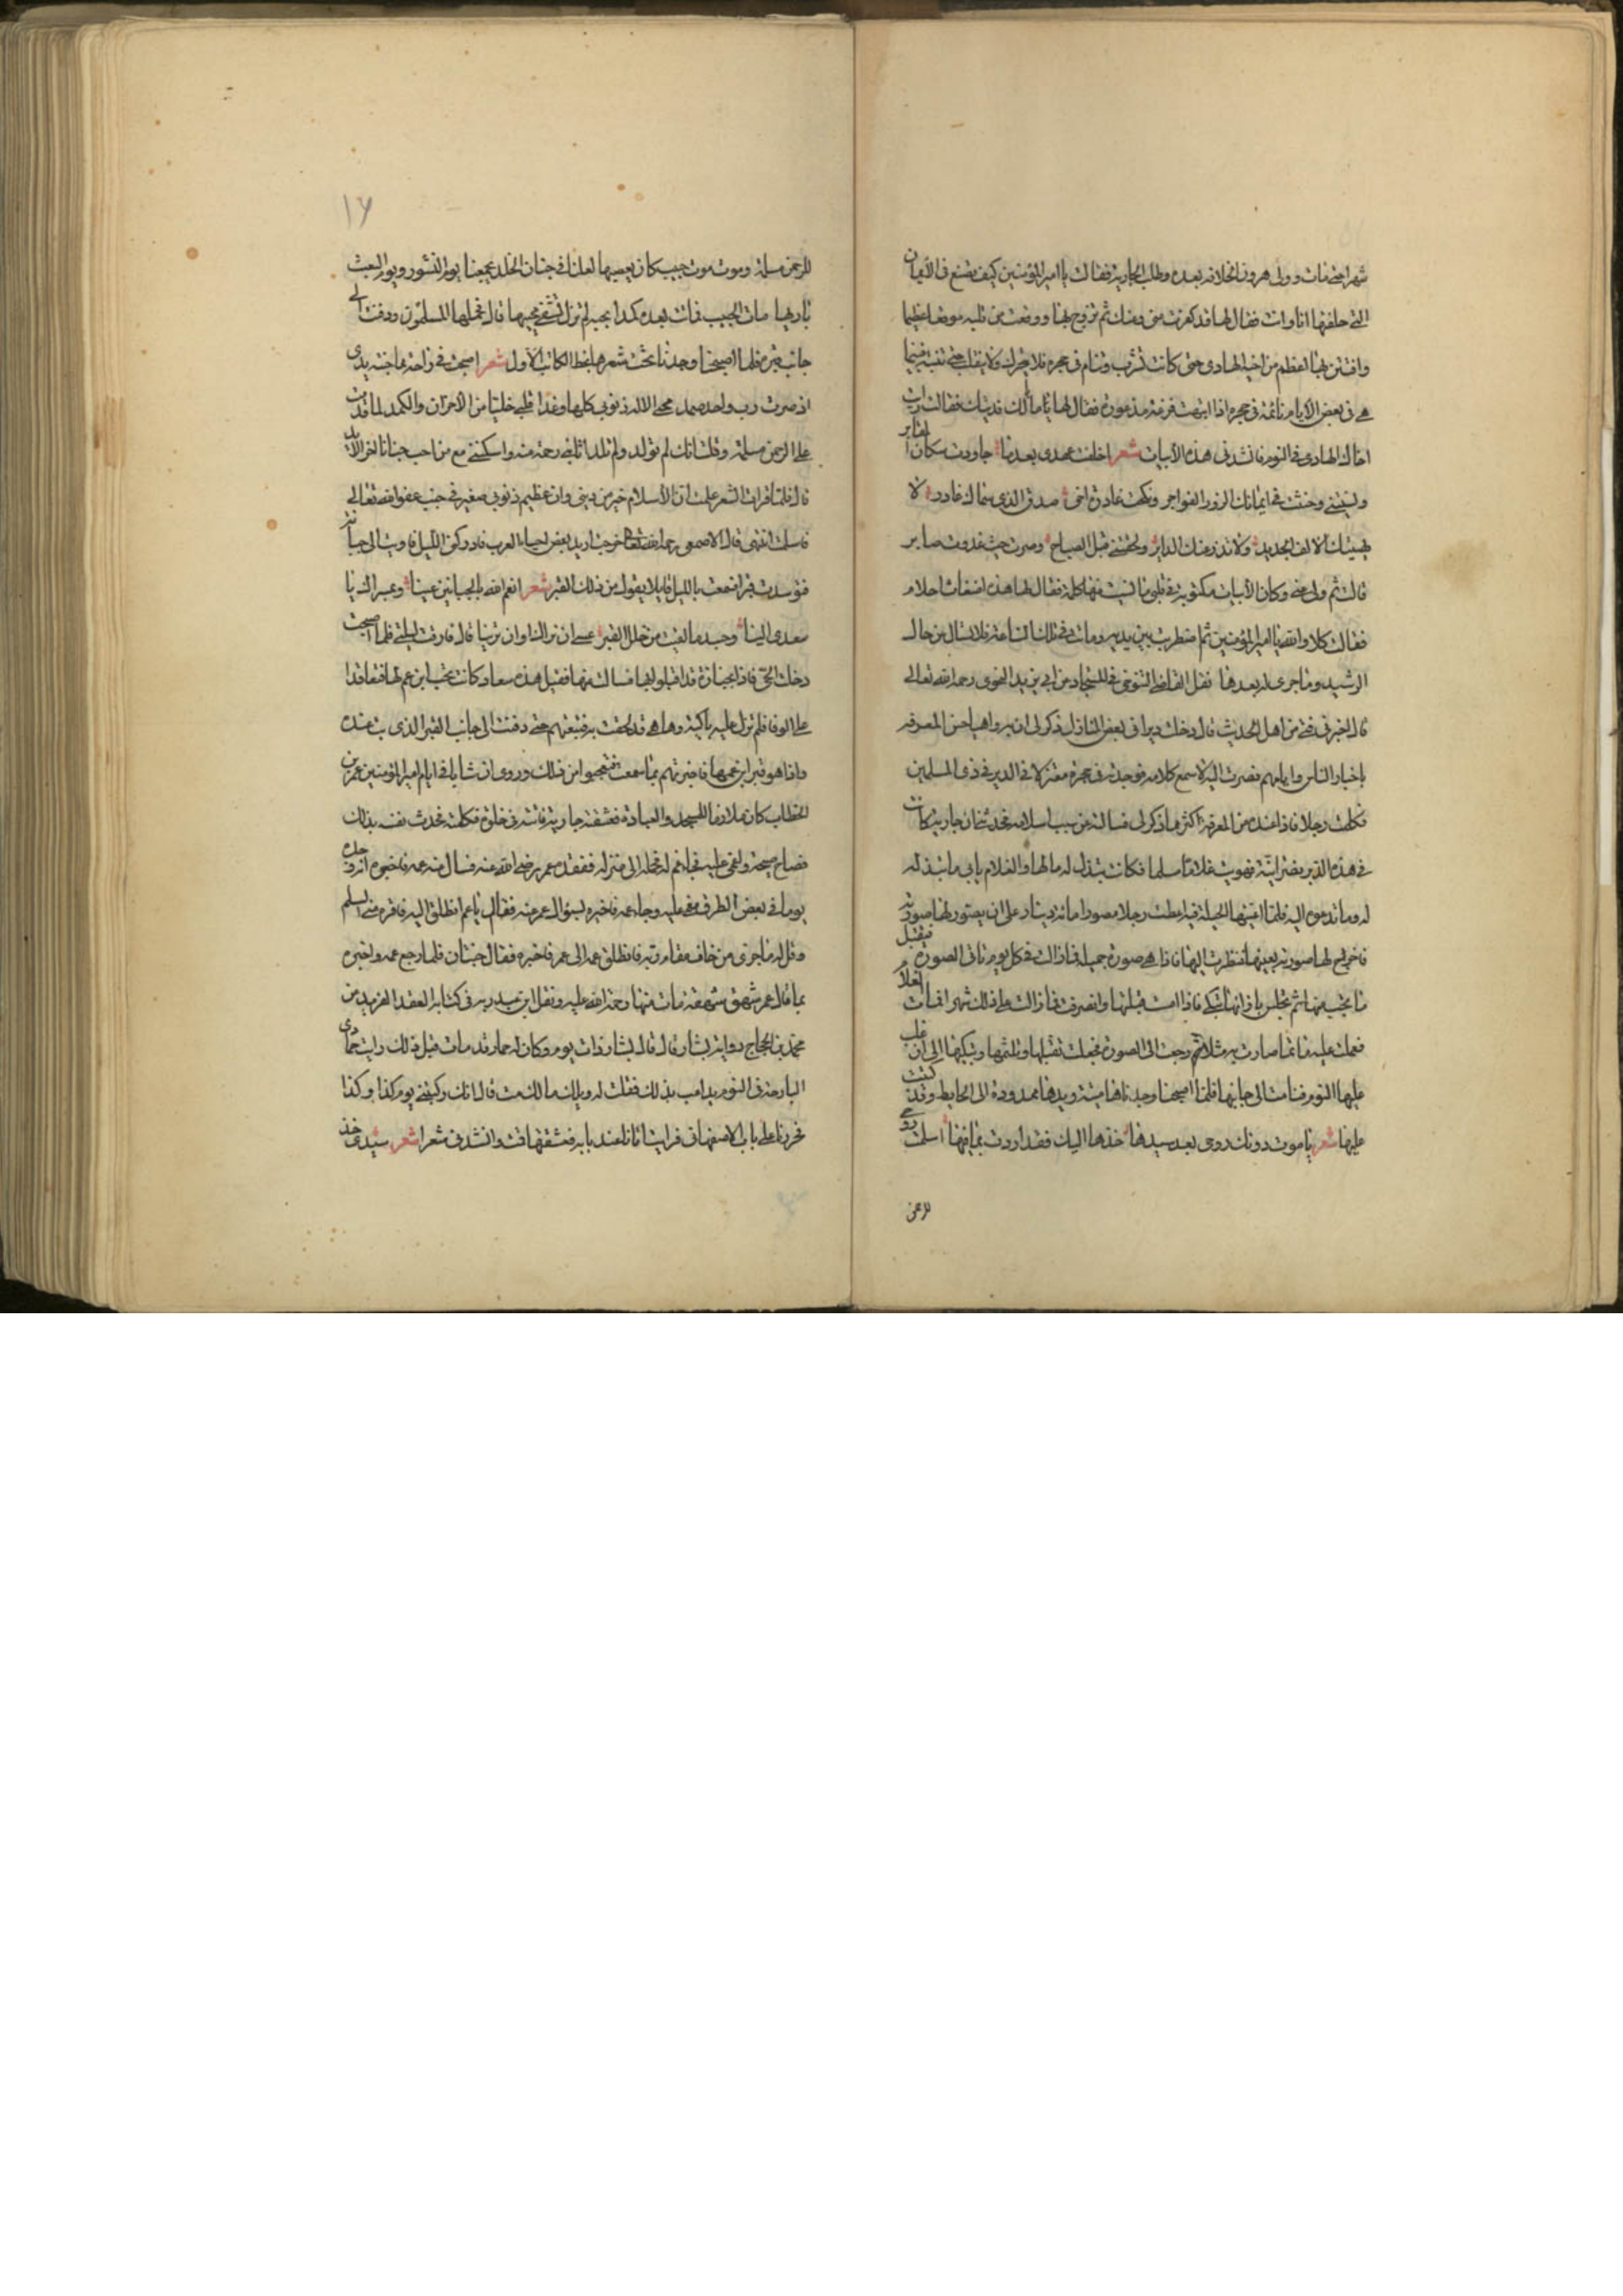 شهرا حتى مات وولى هرون الخلافه بعده وطلب الجاريه فقالت يا امير المؤمنين كيف تصنع فى الايمان
التى حلفتها انا وانت فقال لها قد كفرت عنى وعنك ثم تزوج بها ووقعت من قلبه موضعا عظيما
وافتتن بها اعظم من اخيه الهادى حتى كانت تشرب وتنام فى حجره فلا يتحرك ولا ينقلب حتى تنتبه فبينما
هى فى بعض الايام نائمة فى حجره اذا انتبهت فزعة مذعورة فقال لها ما لك فديتك فقالت رايت
اخاك الهادى فى النوم فانشدنى هذه الابيات شعر اخلفت عهدى بعدما جاورت سكان المقابر
ونسيتنى وحنثت فى ايمانك الزور الفواجر ونكحت غادرة اخى صدق الذى سماك غادر لا
يهنيك الالف الجديد ولا تدر عنك الدوائر ولحقتنى قبل الصباح وصرت حيث غدوت صاير
قالت ثم ولى عنى وكان الابيات مكتوبة فى قلبى ما نسيت منها كلمة فقال لها هذه اضغاث احلام
فقالت كلا والله يا امير المؤمنين ثم اضطربت بين يديه وماتت فى تلك الساعة فلا تسال عن حال
الرشيد وما جرى له بعدها نقل القاضى التنوخى فى المستجاد عن ابى يزيد النحوى رحمه الله تعالى
قال اخبرنى فتى من اهل الحديث قال دخلت ديرا فى بعض المنازل ذكر لى ان به راهبا حسن المعرفه
باخبار الناس وايامهم فصرت اليه لاسمع كلامه فوجدته فى حجرة معتزلا فى الدير فى زى المسلمين
فكلمت رجلا فاذا عنده من المعرفة اكثر مما ذكر لى فسالته عن سبب اسلامه فحدثنى ان جارية كانت
فى هذه الدير نصرانية فهويت غلاما مسلما فكانت تبذل له مالها والغلام يابى ما تبذله
له وما تدعوه اليه فلما اعيتها الحيلة فيه اعطت رجلا مصورا مائة دينار على ان يصور لها صورته
فاخرج لها صورته بعينها نظرت اليها فاذا هى صورة جميلة فما زالت فى كل يوم تاتى الصورة فتقبل
ما تحب منها ثم تجلس بازائها تبكى فاذا امست قبلتها وانصرفت فما زالت على ذلك شهرا فمات الغلام
فعملت عليه ماتما صارت به مثلا ثم رجعت الى الصورة فجعلت تقبلها وتلثمها وتبكيها الى ان غلب
عليها النوم فنامت الى جانبها فلما اصبحنا وجدناها ميتة ويدها ممدودة الى الحايط وقد كتبت
عليها شعر يا موت دونك روحى بعد سيدها خذها اليك فقد اودت بما فيها اسلمت روحى
للرحمن
١٦
للرحمن مسلمة وموت موت حبيب كان يعصيها لعلنا فى جنان الخلد يجمعنا يوم النشور ويوم البعث
باريها مات الحبيب فماتت بعده كمدا محبة لم تزل تشقى محبيها قال فحملها المسلمون ودفنت الى
جانب قبره فلما اصبحنا وجدنا تحت شعرها بخط الكاتب الاول شعر اصبحت فى راحة مما جنته يدى
اذ صرت رب واحد صمد محى الاله ذنوبى كلها وغدا قلبى خليا من الاحزان والكمد لما قدمت
على الرحمن مسلمة وقلت انك لم تولد ولم تلد اثابنى رحمة منه واسكننى مع من احب جنانا اخر الابد
قال فلما قرات الشعر علمت ان الاسلام خير من دينى وان عظيم ذنوبى صغير فى جنب عفو الله تعالى
فاسلمت انتهى قال الاصمعى رحمه الله تعالى خرجت اريد بعض احياء العرب فادركنى الليل فاويت الى جبانة
فتوسدت قبرا فسمعت بالليل قائلا يقول من ذلك القبر شعر انعم الله بالحبيبين عينا وبمسراك يا
سعدى الينا وحيدة ما لقيت من خلل القبر عسى ان نراك او ان ترينا قال فارقت ليلتى فلما اصبحت
دخلت الحى فاذا بجنازة قد اقبلوا بها فسالت عنها فقيل هذه سعاد كانت تحب ابن عم لها فتعاقدا
على الوفا فلم تزل عليه باكية وها هى قد لحقت به فتبعتهم حتى دفنت الى جانب القبر الذى بت عنده
واذا هو قبر ابن عمها فاخبرتهم بما سمعت فتعجبوا من ذلك وروى ان شابا فى ايام امير المؤمنين عمر بن
الخطاب كان ملازما للمسجد والعبادة فعشقته جارية فاتته فى خلوة فكلمته فحدث نفسه بذلك
فصاح صيحة وغشى عليه فجاء عم له فحمله الى منزله ففقده عمر رضى الله عنه فسال عنه عمه فاخبره انه وجده
يوما فى بعض الطرق مغمى عليه وجاء عمه فاخبره بسؤال عمر عنه فقال يا عم انطلق اليه فاقره منى السلم
وقل له ما جزى من خاف مقام ربه فانطلق عمه الى عمر فاخبره فقال جنتان فلما رجع عمه واخبره
بما قال عمر شهق شهقة مات منها رحمة الله عليه ونقل ابن عبد ربه فى كتابه العقد الفريد عن
محمد بن الحجاج رواية بشار قال قال بشار ذات يوم وكان له حمار قد مات قبل ذلك رايت حمارى
البارحة فى النوم فقلت له ويلك مالك مت قال انك ركبتنى يوم كذا وكذا
فمررنا على باب الاصفهانى فرايت اتانا عند بابه فعشقتها فمت وانشدنى شعرا شعر سيدى خذ